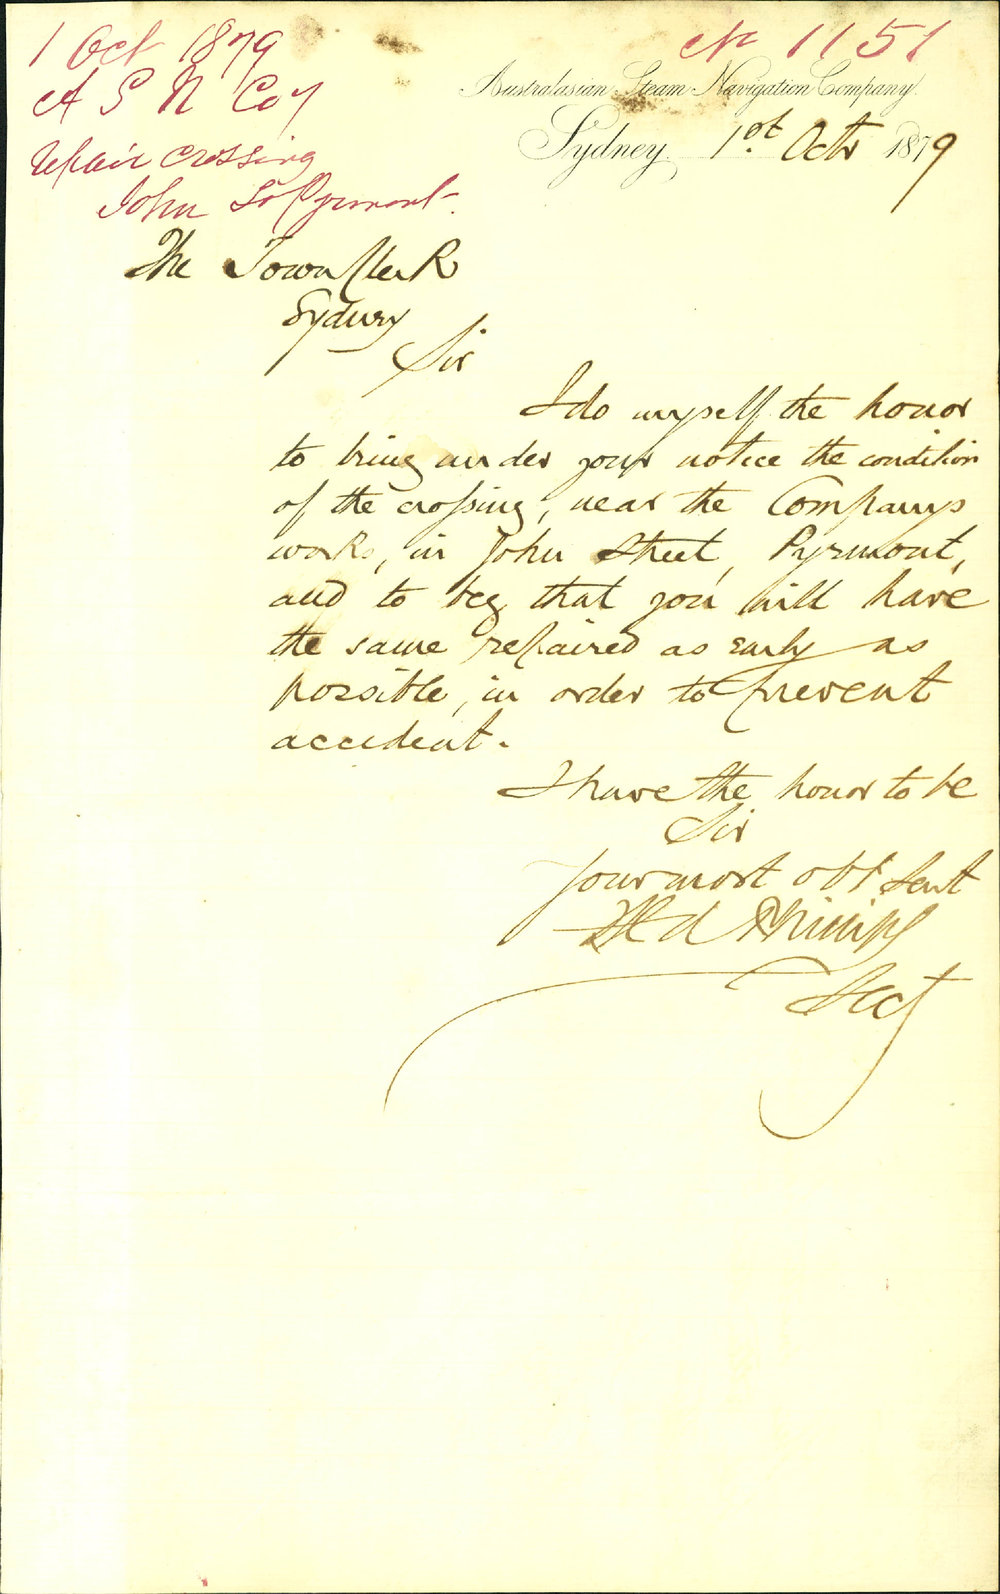 1 Oct 1879
A S N Coy
repair crossing
John St Pyrmont
No 1151
Australasian Steam Navigation Company.
Sydney 1st Octr 1879
The Town Clerk
Sydney
Sir
I do myself the honor
to bring under your notice the condition
of the crossing, near the Companys
works, in John Street, Pyrmont,
and to beg that you will have
the same repaired as early as
possible, in order to prevent
accident.
I have the honor to be
Sir
Your most obt Servt
Fred Phillips
Secy